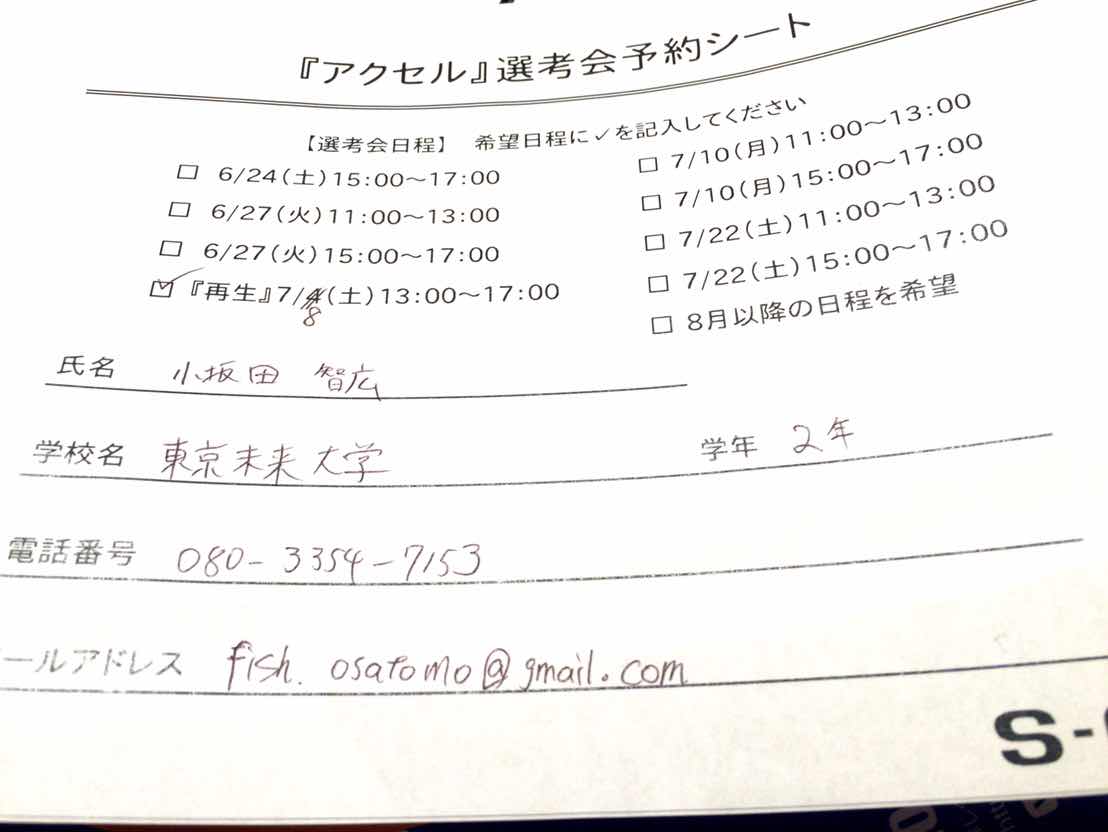 『アクセル』選考会予約シート
【選考会日程】 希望日程に✓を記入してください
□ 6/24(土)15:00～17:00
□ 6/27(火)11:00～13:00
□ 6/27(火)15:00～17:00
☑ 『再生』7/8(土)13:00～17:00
□ 7/10(月)11:00～13:00
□ 7/10(月)15:00～17:00
□ 7/22(土)11:00～13:00
□ 7/22(土)15:00～17:00
□ 8月以降の日程を希望
氏名 小坂田 智広
学校名 東京未来大学 学年 2年
電話番号 080-3354-7153
ールアドレス fish.osatomo@gmail.com
S-